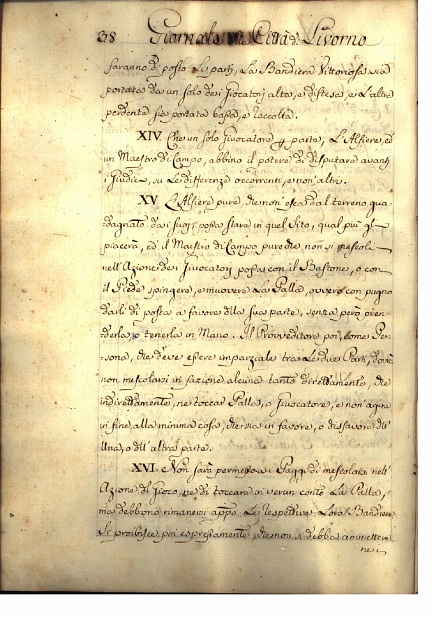 38 Giornale Città di Livorno
saranno di posto Le parij, La Bandiera Vittoriosa sia
portata da un solo dei Giocatorj alta, e distesa, e L'altra
perdente sia portata bassa, e raccolta.
XIV. Che un solo Giuocatore p parte, L'Alfiere, ed
un Maestro di Campo, abbino il potere di disputare avanti
i Giudici, su Le differenze occorrenti, e non altri.
XV. L'Alfiere pure che non esca dal terreno gua-
dagnato dai suoj, possa stare in quel Sito, qual più gli
piacerà, ed il Maestro di Campo pure che non si mescoli
nell'Azione dei Giuocatorj possa con il Bastone, o con
il Piede spingere, e muovere La Palla, ovvero con pugno
darli di posta a favore della sua parte, senza però pren-
derla, o tenerla in Mano. Il Provveditore poi, come Per-
sona, che deve essere imparziale tra Le due Parti, dovrà
non mescolarsi in fazione alcuna tanto direttamente, che
indirettamente, ne toccar Palla, o Giuocatore, e non
in fine alla minima cosa, che sia in favore, o disfavore dell'
Una, o dell'altra parte.
XVI. Non sarà permesso a Paggi di mescolarsi nell'
Azione del Gioco, ne di toccare in verun conto La Palla,
ma debbono rimanersi appo Le respettive Loro Bandiere.
Si proibisce poi espressamente, che non si debba ammetter